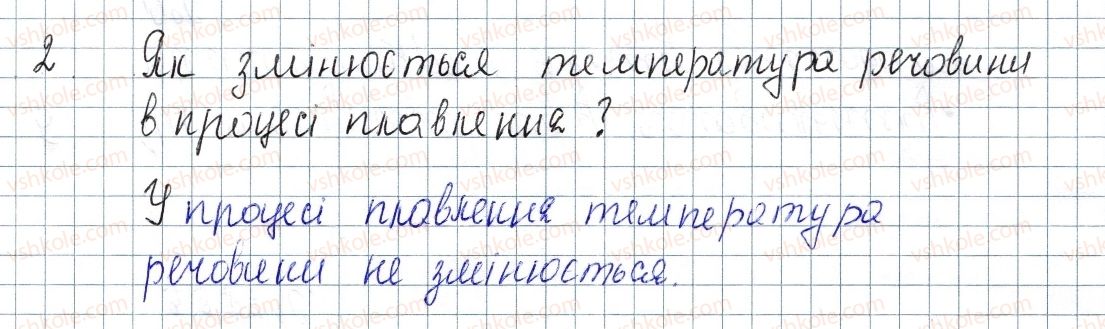 2. Як змінюється температура речовини
в процесі плавлення?
У процесі плавлення температура
речовини не змінюється.